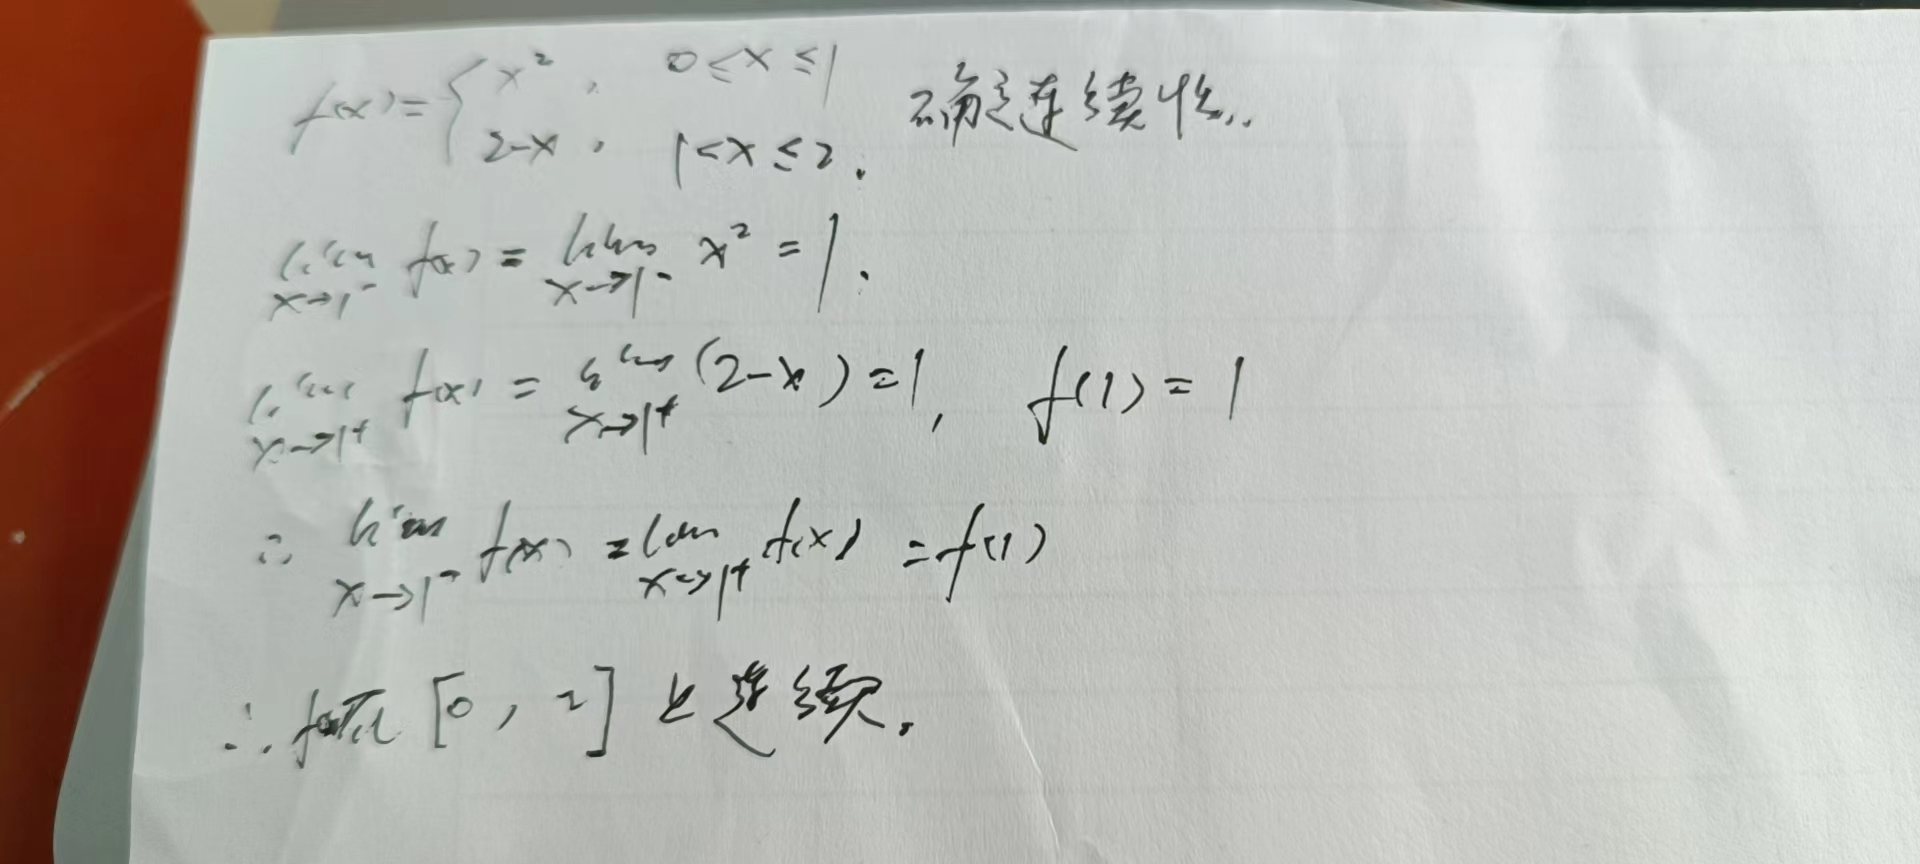 f(x)={x², 0≤x≤1 确定连续性..
2-x, 1<x≤2.
lim x→1⁻ f(x) = lim x→1⁻ x² = 1.
lim x→1⁺ f(x) = lim x→1⁺ (2-x) = 1, f(1) = 1
∴ lim x→1⁻ f(x) = lim x→1⁺ f(x) = f(1)
∴ f(x)在 [0, 2] 上连续.